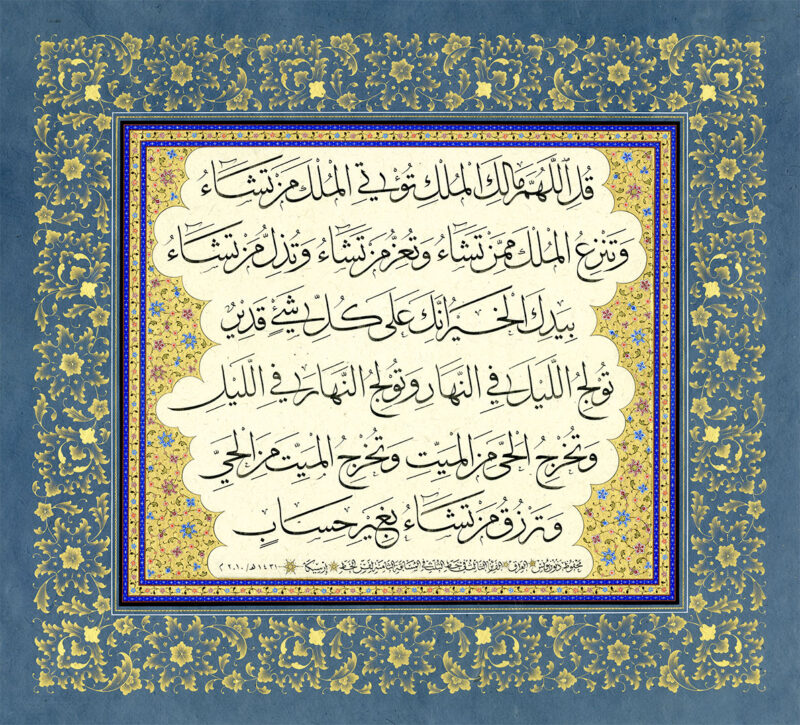 قُلِ اللَّهُمَّ مَالِكَ الْمُلْكِ تُؤْتِي الْمُلْكَ مَنْ تَشَاءُ
وَتَنْزِعُ الْمُلْكَ مِمَّنْ تَشَاءُ وَتُعِزُّ مَنْ تَشَاءُ وَتُذِلُّ مَنْ تَشَاءُ
بِيَدِكَ الْخَيْرُ إِنَّكَ عَلَى كُلِّ شَيْءٍ قَدِيرٌ
تُولِجُ اللَّيْلَ فِي النَّهَارِ وَتُولِجُ النَّهَارَ فِي اللَّيْلِ
وَتُخْرِجُ الْحَيَّ مِنَ الْمَيِّتِ وَتُخْرِجُ الْمَيِّتَ مِنَ الْحَيِّ
وَتَرْزُقُ مَنْ تَشَاءُ بِغَيْرِ حِسَابٍ
محفوظ ذنون يونس العراق الثامنة لفن الخط ارسيكا ١٤٣١هـ / ٢٠١٠ م